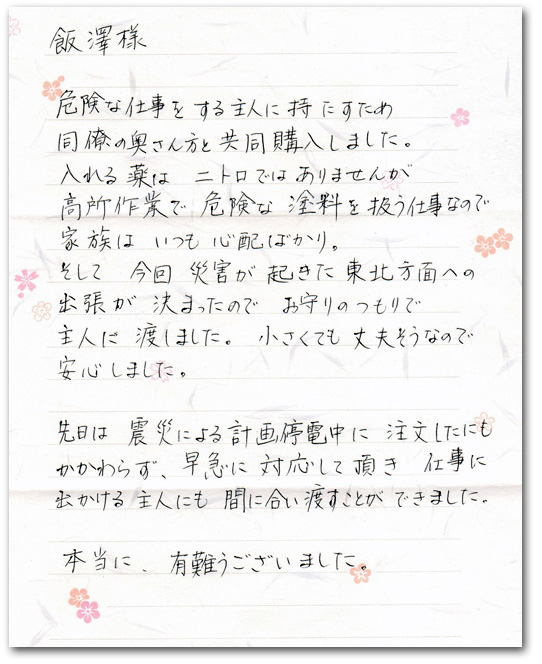 飯澤様
危険な仕事をする主人に持たすため
同僚の奥さん方と共同購入しました。
入れる薬は ニトロではありませんが
高所作業で 危険な 塗料を扱う仕事なので
家族は いつも 心配ばかり。
そして 今回 災害が 起きた 東北方面への
出張が 決まったので お守りのつもりで
主人に 渡しました。 小さくても 丈夫そうなので
安心しました。
先日は 震災による計画停電中に 注文したにも
かかわらず、早急に 対応して頂き 仕事に
出かける主人にも 間に合い渡すことが できました。
本当に、有難うございました。